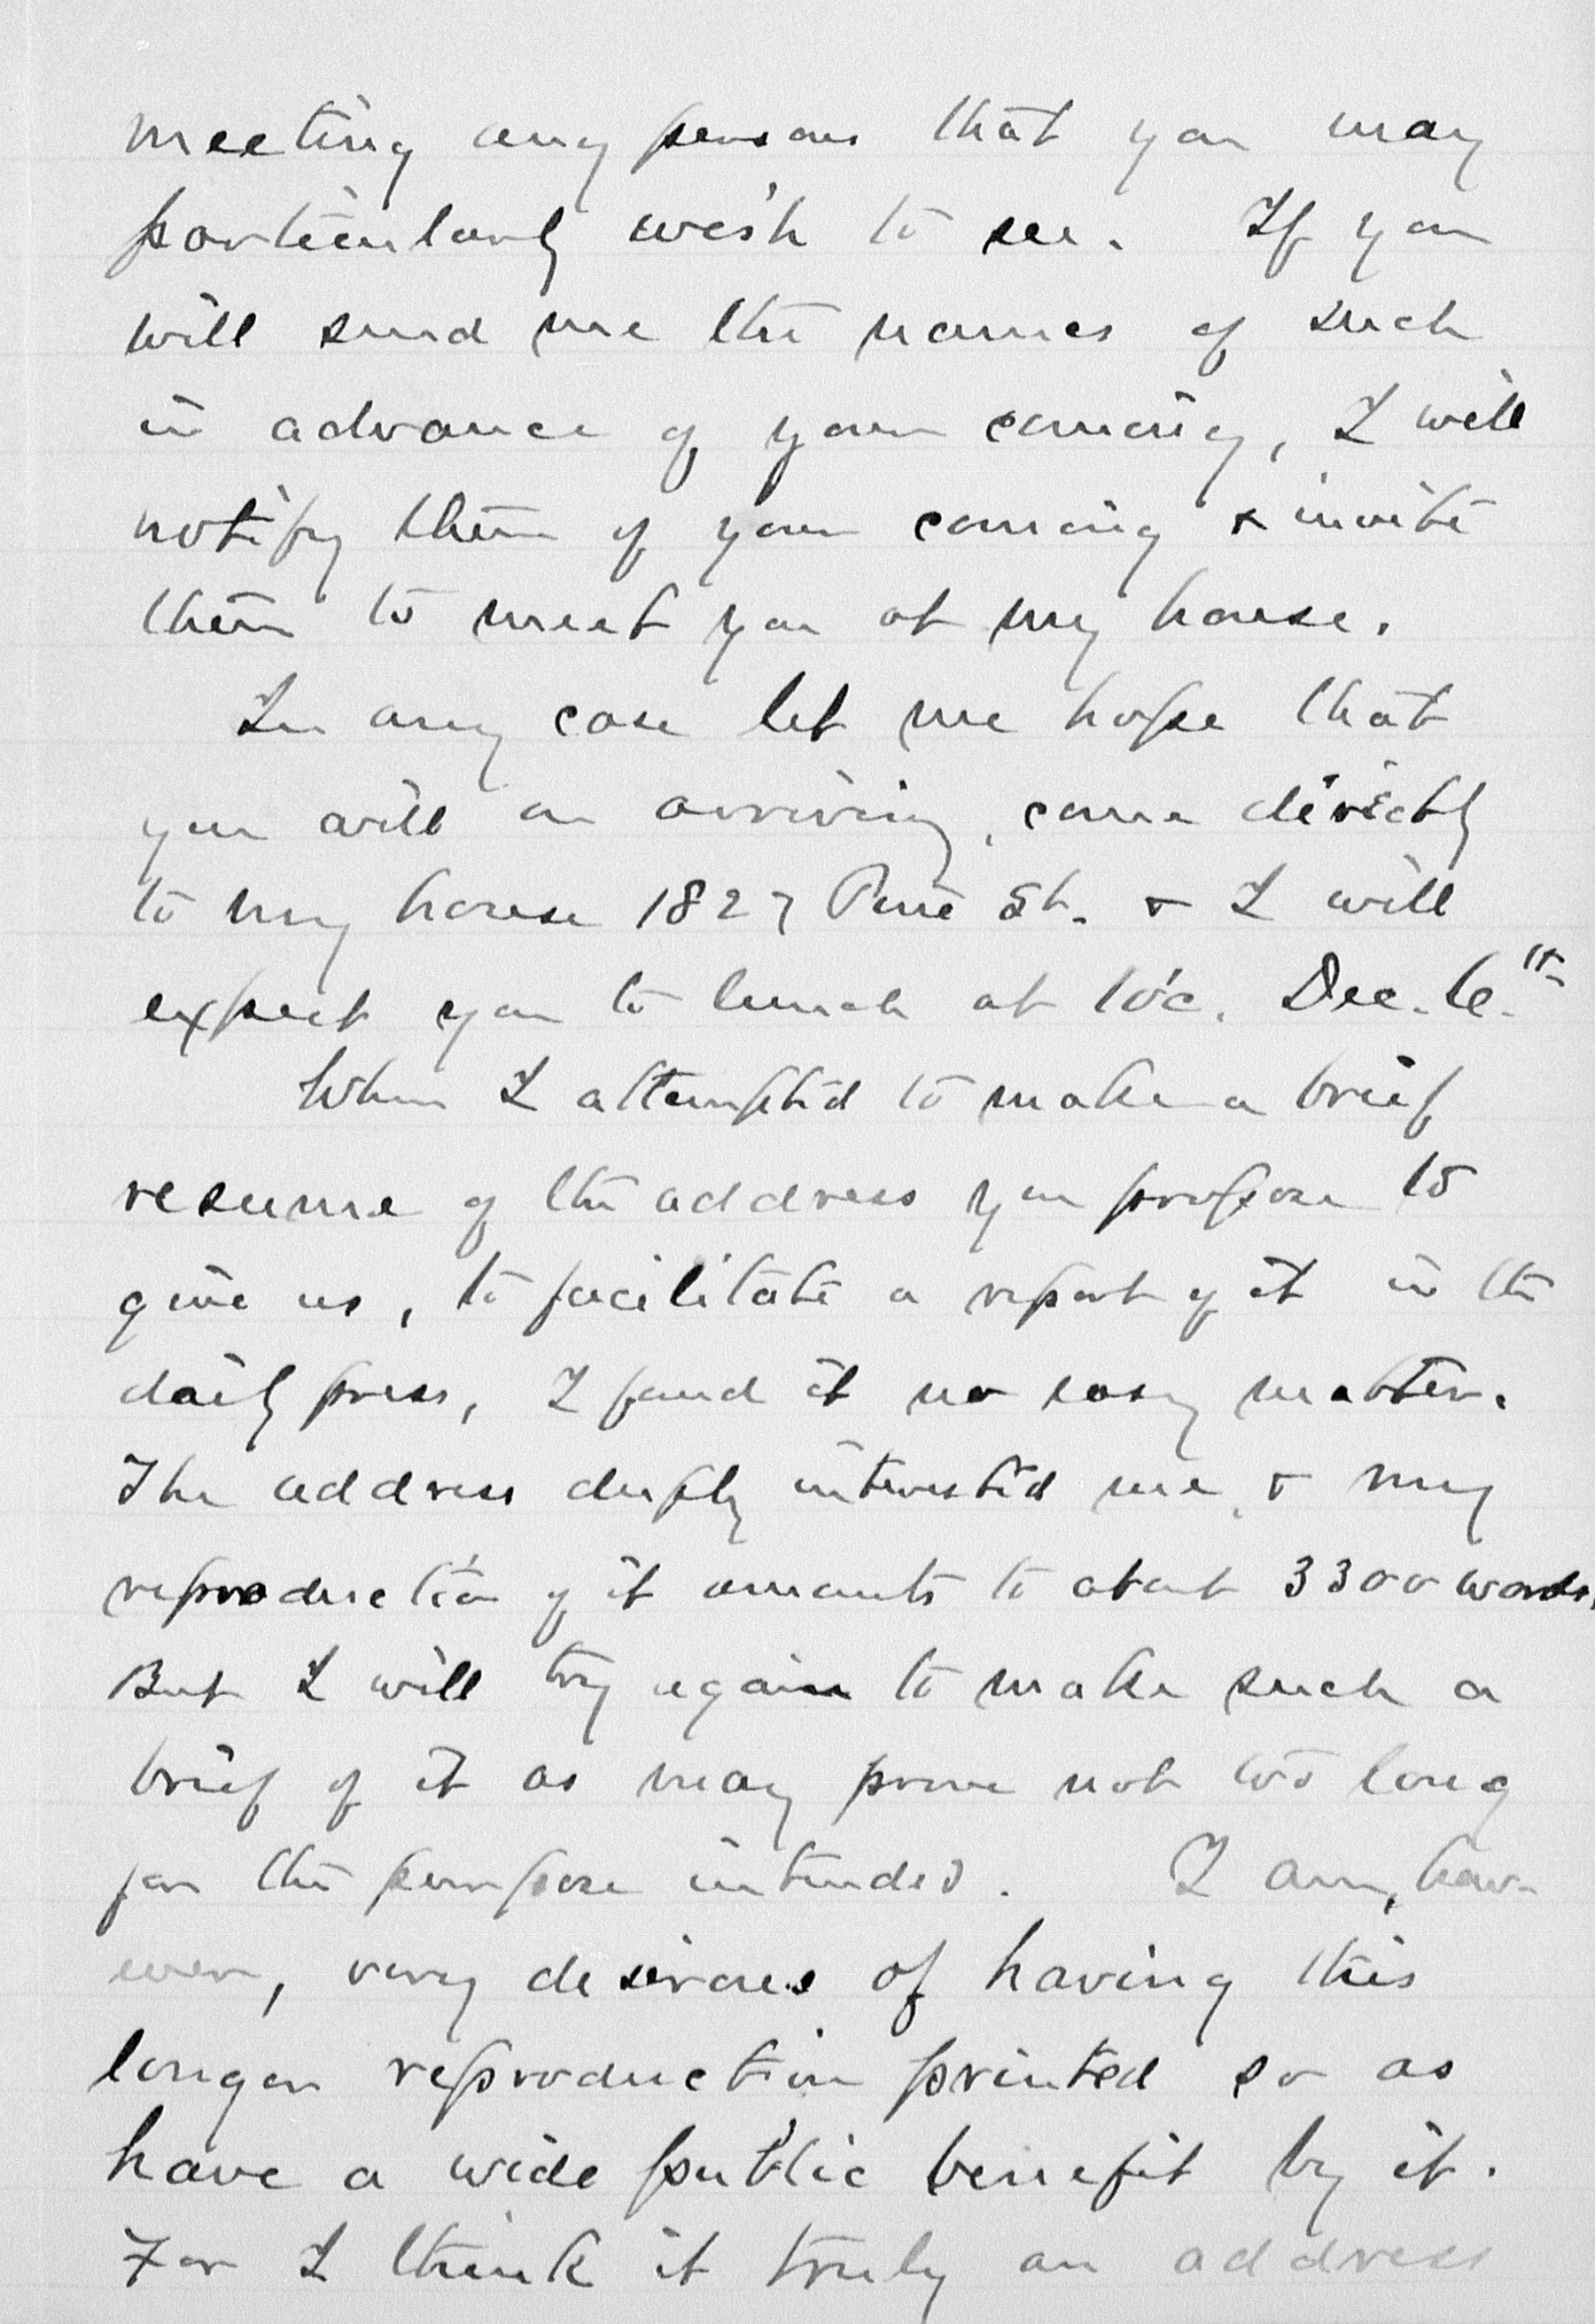 meeting any persons that you may
particularly wish to see. If you
will send me the names of such
in advance of your coming, I will
notify them of your coming & invite
them to meet you at my house.
In any case let me hope that
you will on arriving, come directly
to my house 1827 Pine St. & I will
expect you to lunch at 1 o'c. Dec. 6th
When I attempted to make a brief
resume of the address you propose to
give us, to facilitate a report of it in the
daily press, I found it no easy matter.
The address deeply interested me, & my
reproduction of it amounts to about 3300 words.
But I will try again to make such a
brief of it as may prove not too long
for the purpose intended. I am, how-
ever, very desirous of having this
longer reproduction printed so as
have a wide public benefit by it.
For I think it truly an address